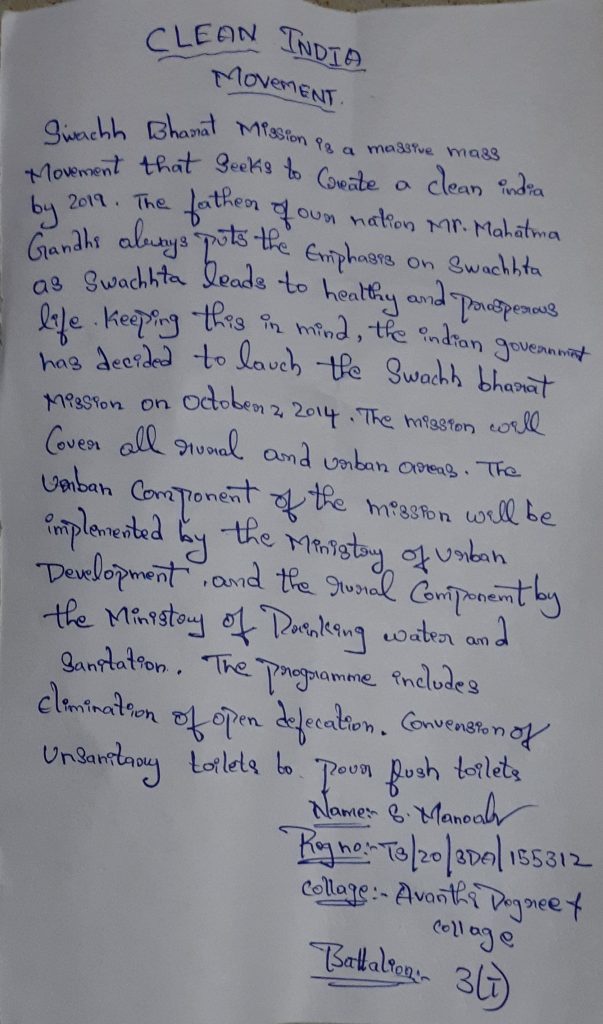 CLEAN INDIA
MOVEMENT.
Swachh Bharat Mission is a massive mass
Movement that Seeks to Create a clean india
by 2019. The father of our nation Mr. Mahatma
Gandhi always puts the Emphasis on Swachhta
as Swachhta leads to healthy and prosperous
life. Keeping this in mind, the indian government
has decided to lauch the Swachh bharat
Mission on October 2 2014. The mission will
Cover all rural and urban areas. The
Urban Component of the mission will be
implemented by the Ministry of urban
Development, and the rural Component by
the Ministry of Drinking water and
Sanitation. The programme includes
Elimination of open defecation. Conversion of
Unsanitary toilets to pour flush toilets
Name:- S.
Reg no:- TS/20/SDA/155312
Collage:- Avanthi Degree
Collage
Battalion:- 3(T)